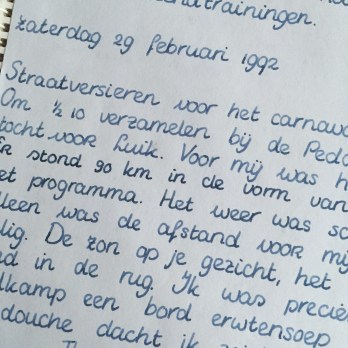 trainingen.
zaterdag 29 februari 1992
Straatversieren voor het
Om ½ 10 verzamelen bij de
tocht voor Luik. Voor mij was
stond 90 km in de vorm van
programma. Het weer was
was de afstand voor
De zon op je gezicht, het
in de rug. Ik was
een bord erwtensoep
douche dacht ik